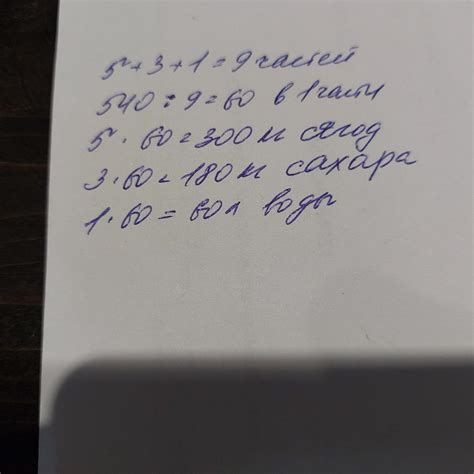 5+3+1=9 частей
540:9=60 в 1 части
5·60=300 кг ягод
3·60=180 кг сахара
1·60=60 л воды